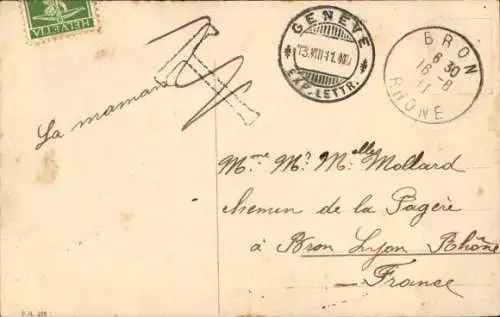 HELVETIA
GENÈVE
13.VIII.11.
EXP. LETTR.
BRON
6 30
16 -8
11
RHONE
T
La maman
Mme Mr Melle Mollard
chemin de la Pagère
à Bron Lyon Rhône
France